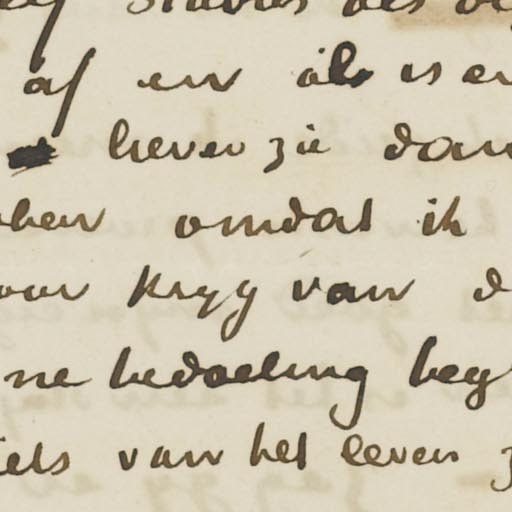 af en als er
liever zie dan
ben omdat ik
oor kryg van d
ne bedoeling beg
iets van het leven z